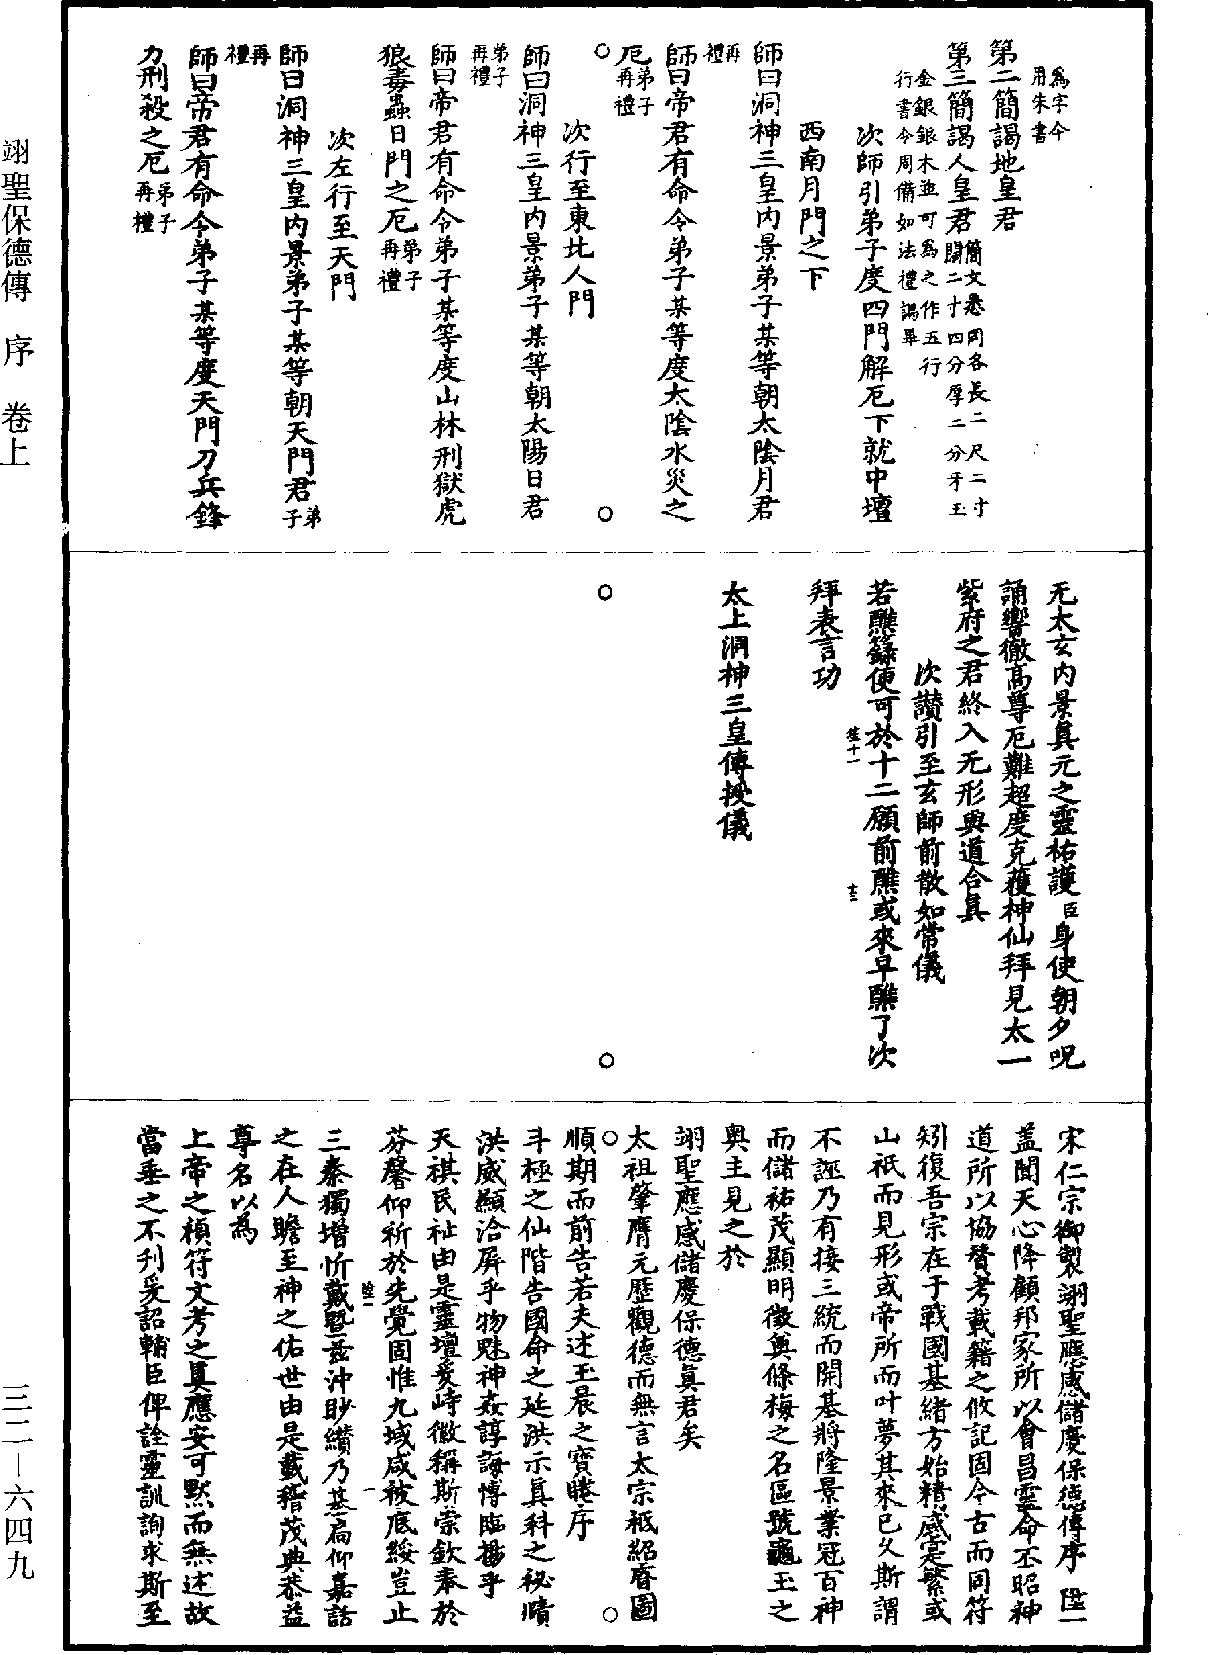 爲字今
用朱書
第二簡謁地皇君
第三簡謁人皇君簡文悉同各長二尺二寸
闊二寸四分厚二分牙玉
金銀銀木並可爲之作五行
行書今周備如法禮謁畢
次師引弟子度四門解厄下就中壇
西南月門之下
師曰洞神三皇内景弟子某等朝太陰月君
再禮
師曰帝君有命令弟子某等度太陰水災之
厄弟子再禮
次行至東北人門
師曰洞神三皇内景弟子某等朝太陽日君
弟子再禮
師曰帝君有命令弟子某等度山林刑獄虎
狼毒蟲日門之厄弟子再禮
次左行至天門
師曰洞神三皇内景弟子某等朝天門君弟子
再禮
師曰帝君有命令弟子某等度天門刀兵鋒
力刑殺之厄弟子再禮
无太玄内景真元之靈祐護臣身使朝夕呪
誦響徹髙尊厄難超度克獲神仙拜見太一
紫府之君終入无形與道合真
次讚引至玄師前散如常儀
若醮籙使可於十二願前醮或來早醮了次
拜表言功
太上洞神三皇傳授儀
宋仁宗御製翊聖應感儲慶保德傳序 陞一
蓋聞天心降顧邦家所以會昌靈命丕昭神
道所以協贊考載籍之攸記固今古而同符
矧復吾宗在于戰國基緒方始精感寔繁或
山祇而見形或帝所而叶夢其來已久斯謂
不誣乃有接三統而開基將隆景業冠百神
而儲祐茂顯明徵與條梅之名區號龜玉之
奥主見之於
翊聖應感儲慶保德真君矣
太祖肇膺元歷觀德而無言太宗祗紹眷圖
順期而前告若夫述玉晨之寶勝序
斗極之仙階告國命之延洪示真科之祕賾
洪威顯洽屏乎物魅神姦諄誨博臨揚乎
天祺民祉由是靈壇爰峙徽稱斯崇欽奉於
芬馨仰祈於先覺固惟九域咸被底綏豈止
三秦獨增忻戴暨兹沖眇纘乃基扃仰嘉話
之在人瞻至神之佑世由是載稽茂典恭益
尊名以爲
上帝之楨符文考之真應安可默而無述故
當垂之不刋爰詔輔臣俾詮靈訓詢求斯至
翊聖保德傳 序 卷上
三二—六四九